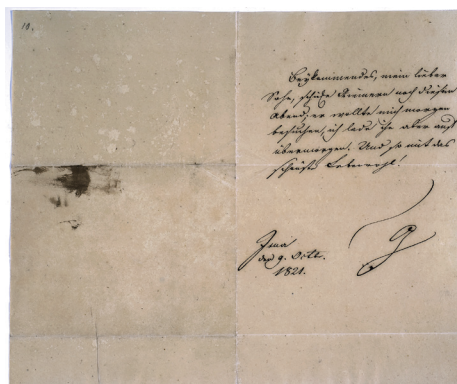 10.
Beykommendes, mein lieber
Sohn, schicke Riemern noch diesen
Abend, er wollte mich morgen
besuchen, ich lade ihn aber auf
übermorgen. Und so mit das
schönste Lebewohl!
Jena
den 9. Octb.
1821.
G